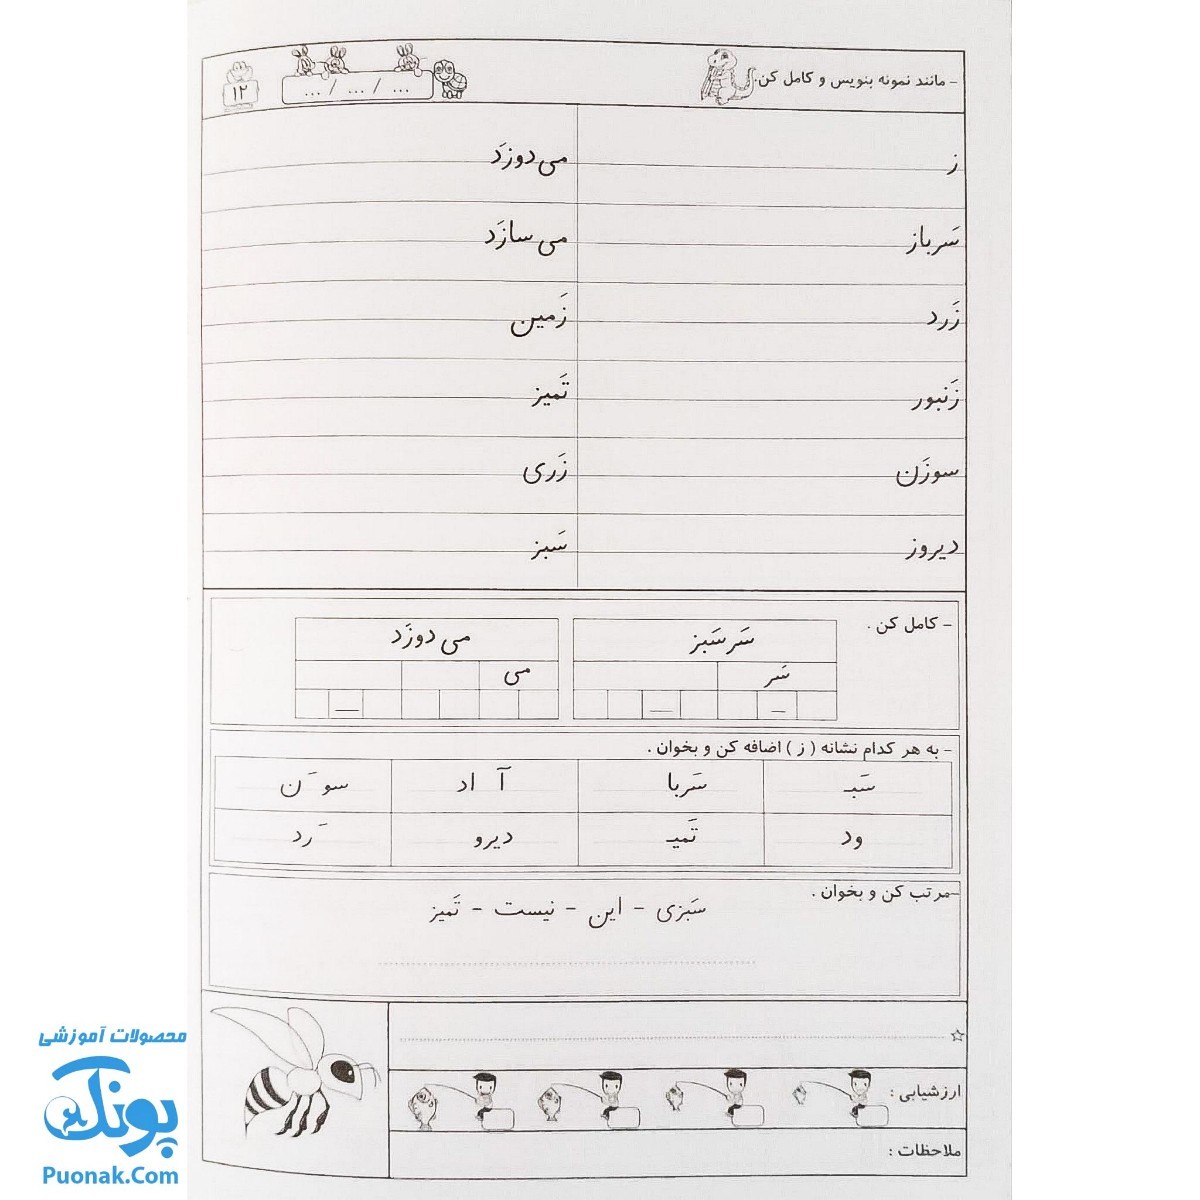 - مانند نمونه بنویس و کامل کن.
... / ... / ...
۱۲
ز
می‌دوزَد
سَرباز
می‌سازَد
زَرد
زَمین
زَنبور
تَمیز
سوزَن
زَری
دیروز
سَبز
- کامل کن .
سَرسَبز
می‌دوزَد
سَر
می
- به هر کدام نشانه ( ز ) اضافه کن و بخوان .
سَبـ
سَربا
آ اد
سو َن
ود
تَمیـ
دیرو
َرد
-مرتب کن و بخوان .
سَبزی - این - نیست - تَمیز
ارزشیابی :
ملاحظات :
محصولات آموزشی
پونک
Puonak.Com